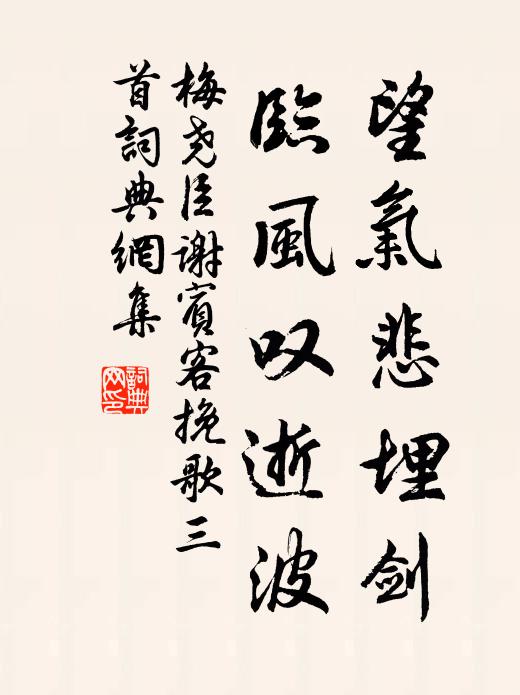 望氣悲埋剑
臨風叹逝波
梅尧臣谢賓客挽歌三
首詞典網集
詞典
网印